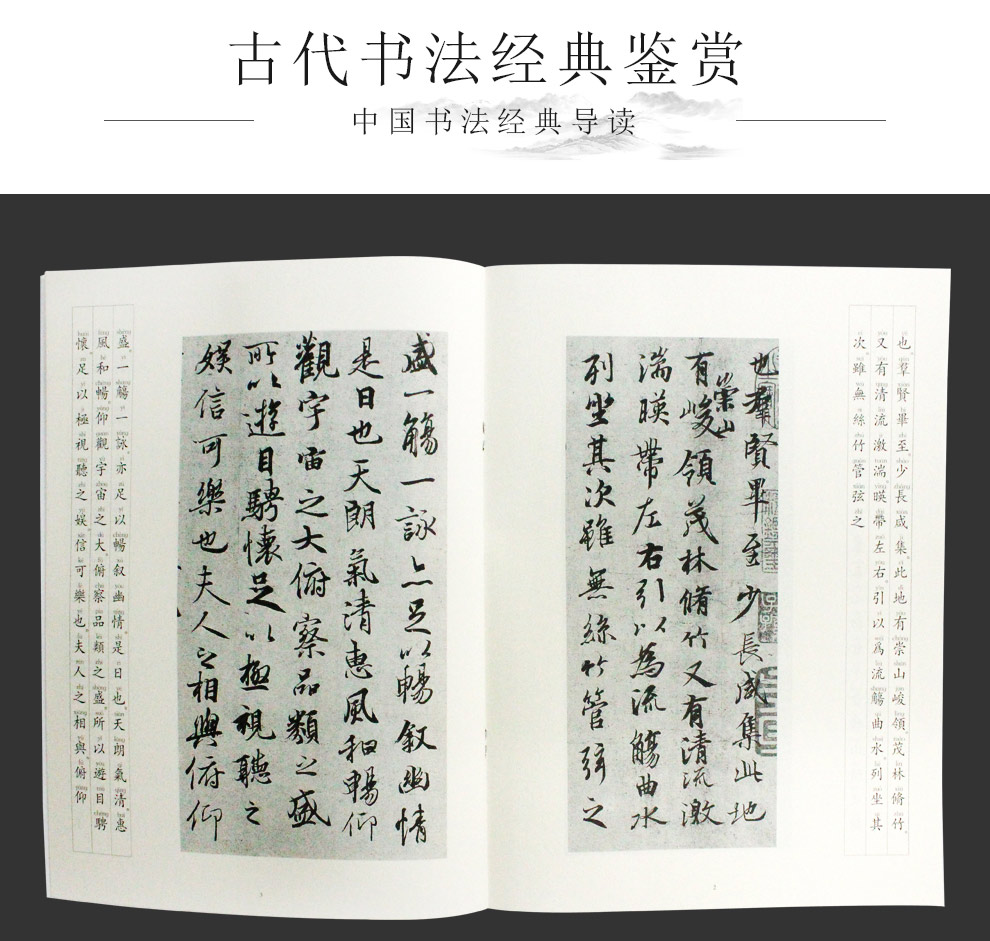 古代书法经典鉴赏
中国书法经典导读
也羣賢畢至少長咸集此地有崇山峻領茂林脩竹
又有清流激湍暎帶左右引以爲流觴曲水列坐其
次雖無絲竹管弦之
也羣賢畢至少長咸集此地
有崇山峻領茂林脩竹又有清流激
湍暎帶左右引以為流觴曲水
列坐其次雖無絲竹管弦之
2
盛一觴一詠亦足以暢叙幽情
是日也天朗氣清惠風和暢仰
觀宇宙之大俯察品類之盛
所以遊目騁懷足以極視聽之
娱信可樂也夫人之相與俯仰
盛一觴一詠亦足以暢叙幽情是日也天朗氣清惠
風和暢仰觀宇宙之大俯察品類之盛所以遊目騁
懷足以極視聽之娱信可樂也夫人之相與俯仰
3